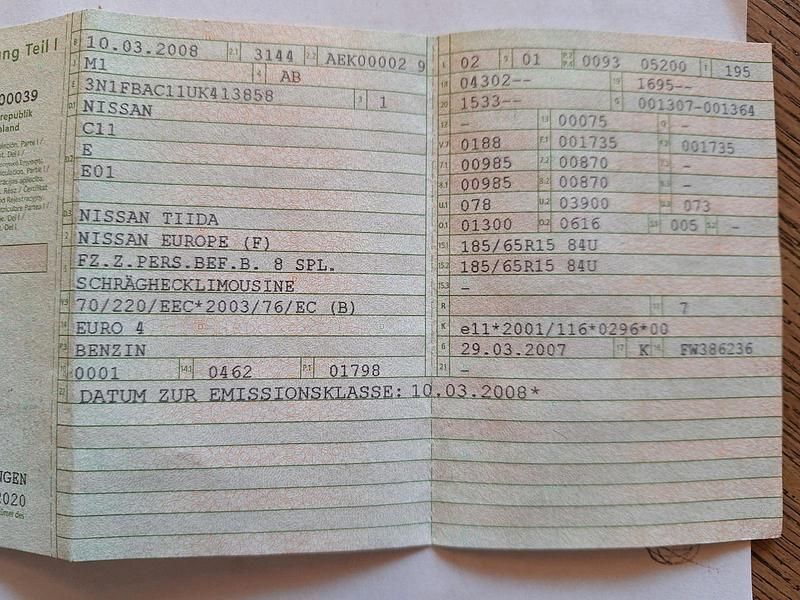 ng Teil I
00039
republik
hland
B 10.03.2008 2.1 3144 2.2 AEK00002 9
J M1 4 AB
E 3N1FBAC11UK413858 3 1
D.1 NISSAN
C11
D.2 E
E01
D.3 NISSAN TIIDA
2 NISSAN EUROPE (F)
5 FZ.Z.PERS.BEF.B. 8 SPL.
SCHRÄGHECKLIMOUSINE
V.9 70/220/EEC*2003/76/EC (B)
14 EURO 4
P.3 BENZIN
10 0001 14.1 0462 P.1 01798
22 DATUM ZUR EMISSIONSKLASSE: 10.03.2008*
L 02 9 01 P.2 P.4 0093 05200 T 195
18 04302-- 19 1695--
20 1533-- G 001307-001364
12 - 13 00075 Q -
V.7 0188 F.1 001735 F.2 001735
7.1 00985 7.2 00870 7.3 -
8.1 00985 8.2 00870 8.3 -
U.1 078 U.2 03900 U.3 073
O.1 01300 O.2 0616 S.1 005 S.2 -
15.1 185/65R15 84U
15.2 185/65R15 84U
15.3 -
R 11 7
K e11*2001/116*0296*00
6 29.03.2007 17 K 16 FW386236
21 -
NGEN
2020